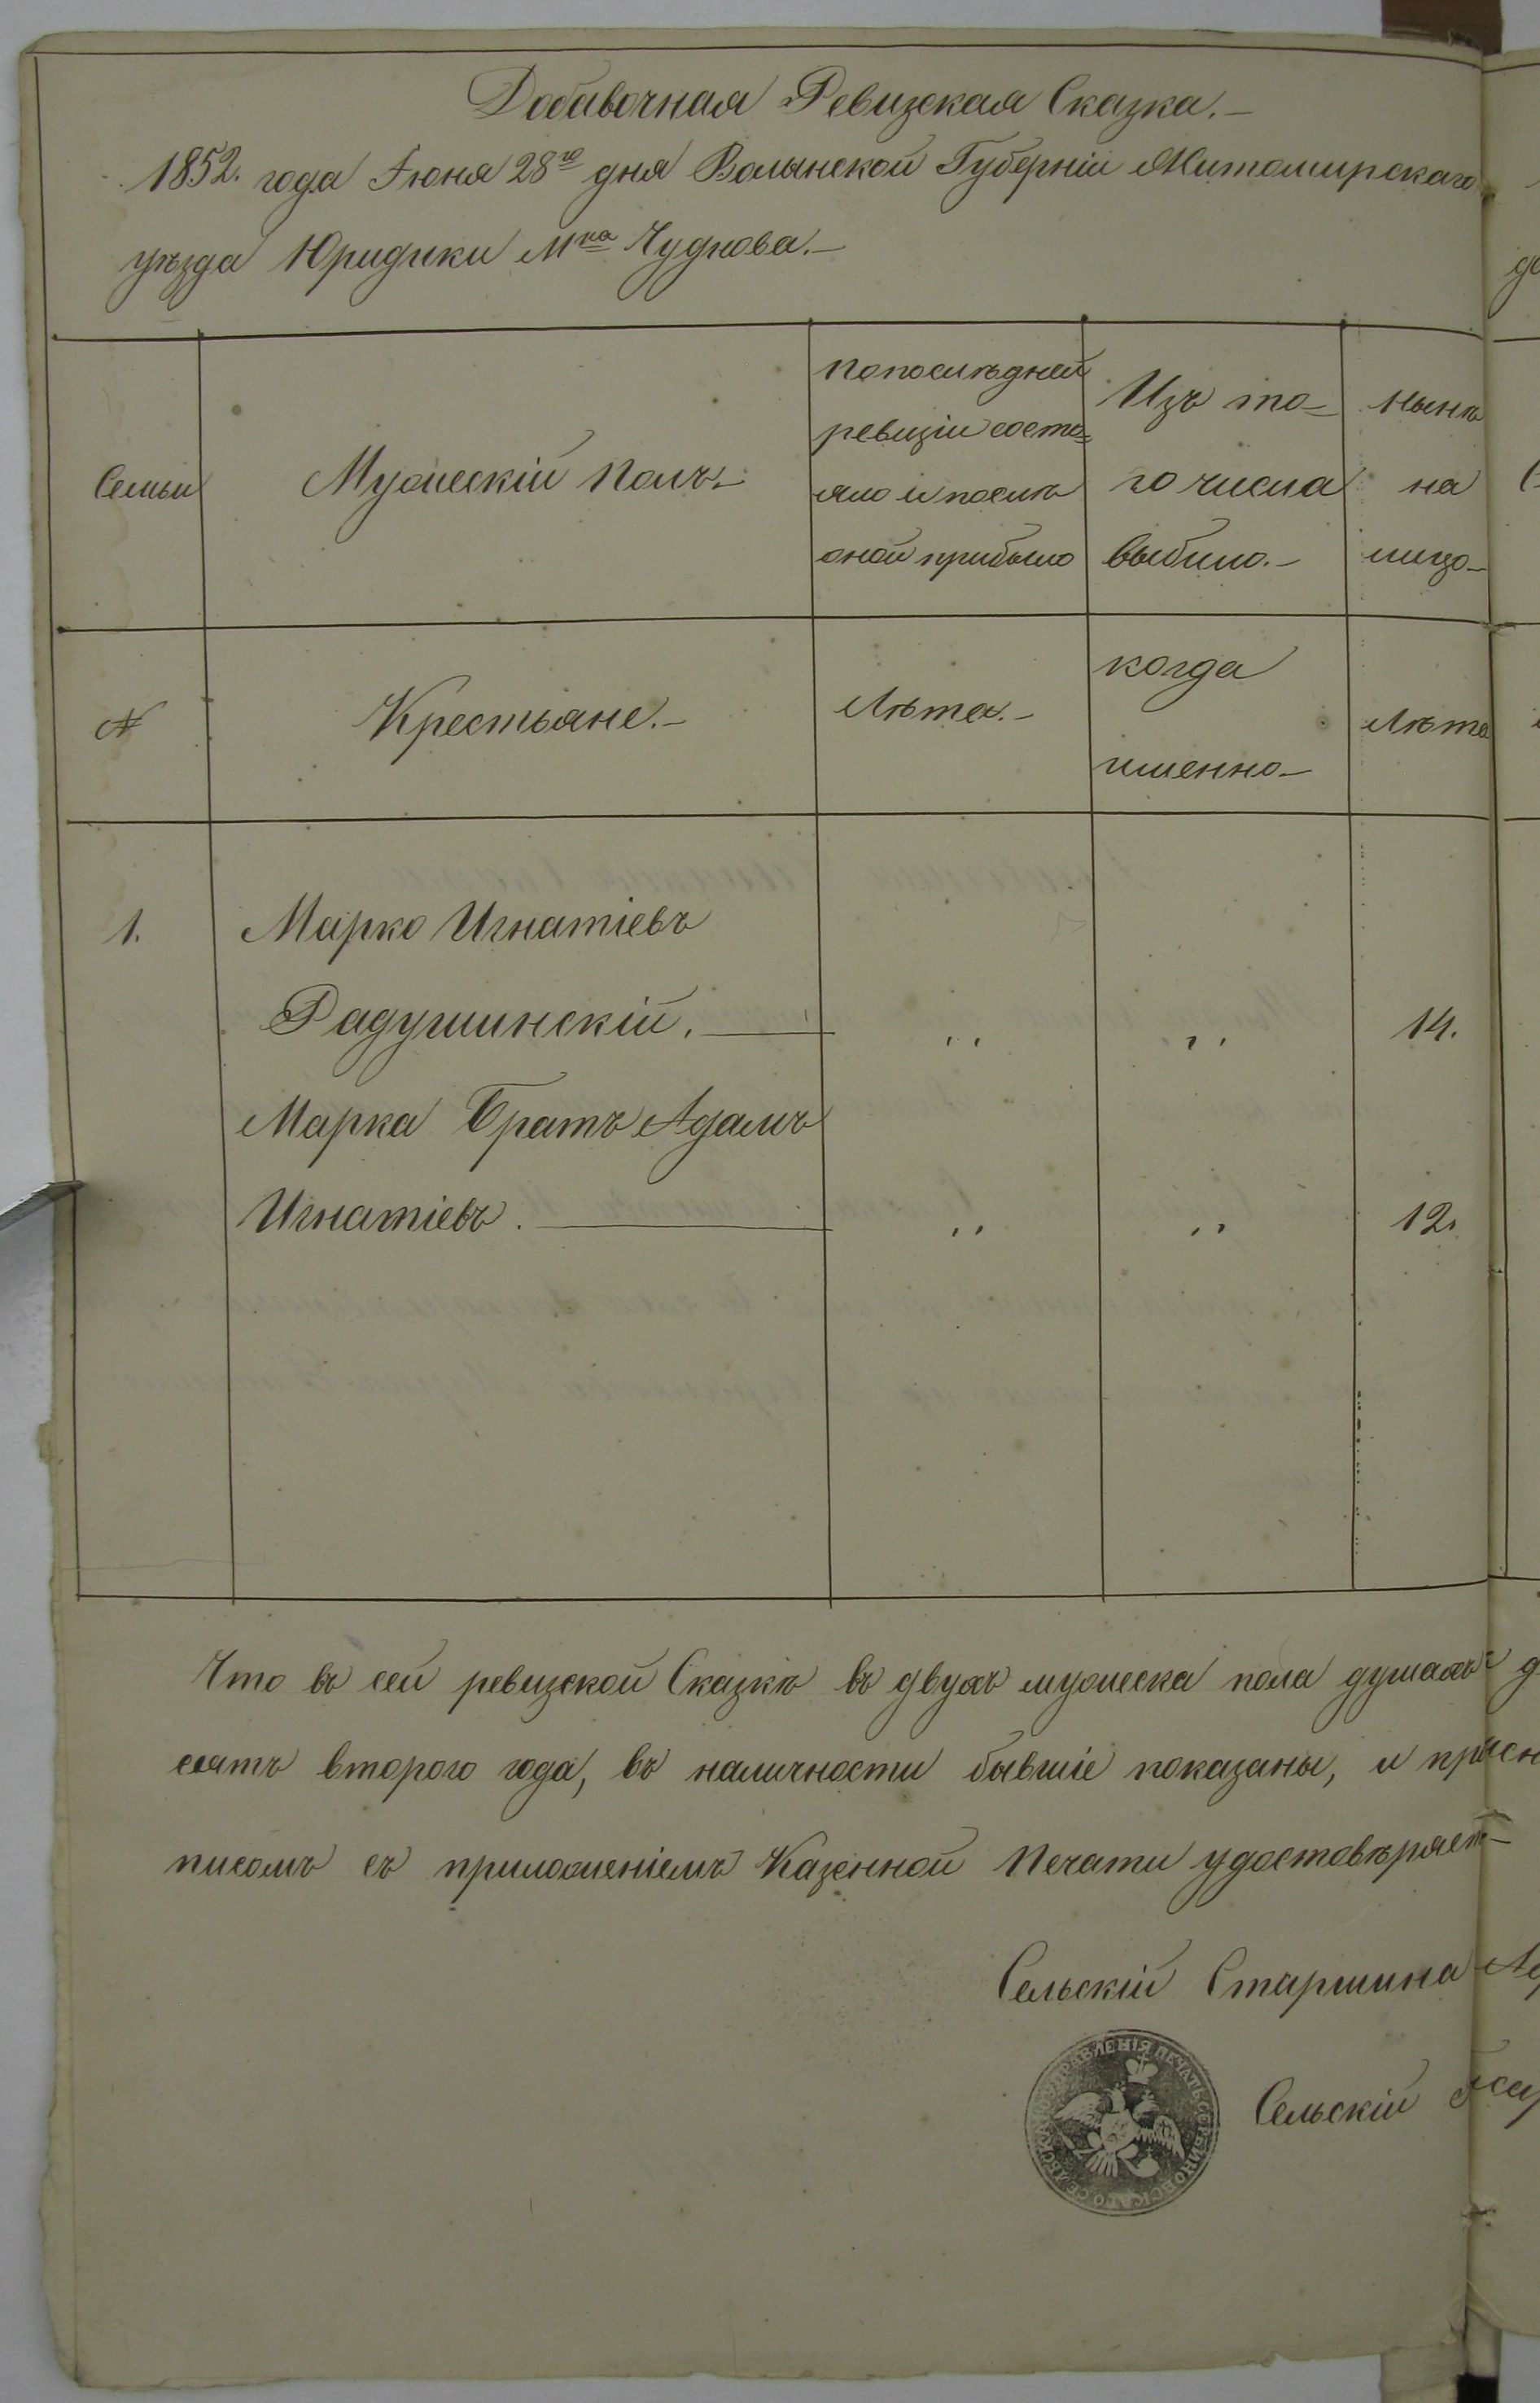 Добавочная Ревизская Сказка.-
1852. года Іюня 28го дня Волынской Губерніи Житомирскаго
уѣзда Юридики Мка Чуднова.-
Семьи
Мужескій Полъ.
По послѣдней
ревизіи состо=
яло и послѣ
оной прибыло
Изъ то-
го числа
выбыло.-
Нынѣ
на
лицо-
№
Крестьяне.-
Лѣта.-
когда
именно-
Лѣта
1.
Марко Игнатіевъ
Радушинскій.
,,
,,
14.
Марка Братъ Адамъ
Игнатіевъ.
,,
,,
12.
Что въ сей ревизской Сказкѣ въ двухъ мужеска пола душахъ
сятъ второго года, въ наличности бывшіе показаны, и
писомъ съ приложеніемъ Казенной Печати удостовѣряет-
Сельскій Старшина
Сельскій
ПЕЧАТЬ СЕРБИНОВСКАГО СЕЛЬСКАГО УПРАВЛЕНІЯ